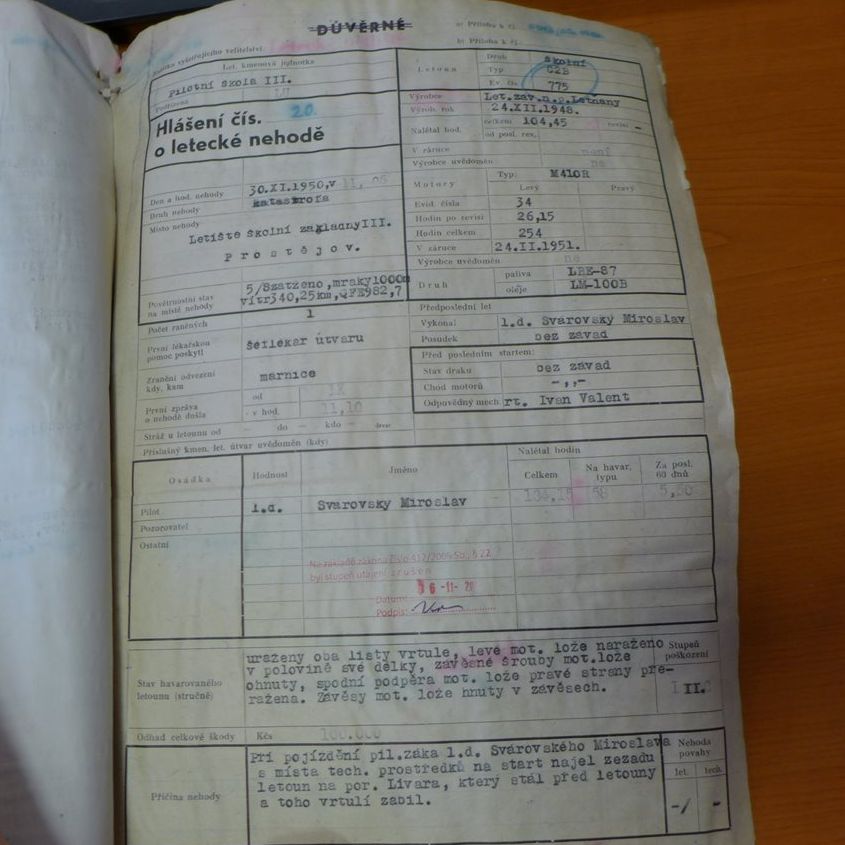 DŮVĚRNÉ
a) Příloha k čj.
b) Příloha k čj.
velitelství:
Let. kmenová jednotka
Pilotní škola III.
Podřízena
Hlášení čís. 20.
o letecké nehodě
Den a hod. nehody 30.XI.1950,v 11,05
Druh nehody katastrofa
Místo nehody
Letiště školní základnyIII.
Prostějov.
Povětrnostní stav
na místě nehody
5/8zatženo,mraky1000m
vítr340,25km,QFE982,7
Počet raněných 1
První lékařskou
pomoc poskytl šeflékař útvaru
Zranění odvezeni
kdy, kam marnice
První zpráva
o nehodě došla
od
v hod. 11,10
Stráž u letounu od – do – kdo –
Příslušný kmen. let. útvar uvědoměn (kdy)
Letoun
Druh školní
Typ C2B
Ev. čís. 775
Výrobce Let.záv.n.p.Letňany
Výrob. rok 24.XII.1948.
Nalétal hod. celkem 104,45 revisi –
od posl. rev.
V záruce není
Výrobce uvědoměn ne
Motory
Typ: M410R
Levý Pravý
Evid. čísla 34
Hodin po revisi 26,15
Hodin celkem 254
V záruce 24.II.1951.
Výrobce uvědoměn ne
Druh
paliva LBE-87
oleje LM-100B
Předposlední let
Vykonal l.d. Svarovský Miroslav
Posudek bez závad
Před posledním startem:
Stav draku bez závad
Chod motorů –„–
Odpovědný mech. rt. Ivan Valent
Osádka Hodnost Jméno
Nalétal hodin
Celkem Na havar. typu Za posl. 60 dnů
Pilot l.d. Svarovský Miroslav 104,15 58 5,30
Pozorovatel
Ostatní
Na základě zákona číslo 412/2005 Sb., § 22
byl stupeň utajení zrušen
Datum: 06 -11- 20
Podpis:
Stav havarovaného
letounu (stručně)
uraženy oba listy vrtule, levé mot. lože naraženo
v polovině své délky, závěsné šrouby mot.lože
ohnuty, spodní podpěra mot. lože pravé strany pře-
ražena. Závěsy mot. lože hnuty v závěsech.
Stupeň
poškození
II.
Odhad celkové škody Kčs 100.000
Příčina nehody
Při pojíždění pil.žáka l.d. Svárovského Miroslava
s místa tech. prostředků na start najel zezadu
letoun na por. Livara, který stál před letouny
a toho vrtulí zabil.
Nehoda
povahy
let. tech.
-/ -